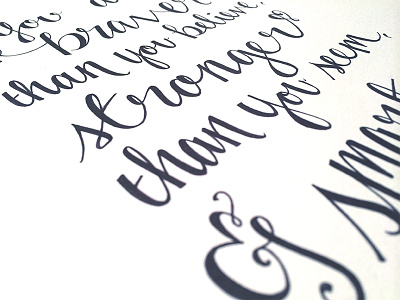 you a
braver
than you believe,
stronger
than you seem,
& smart